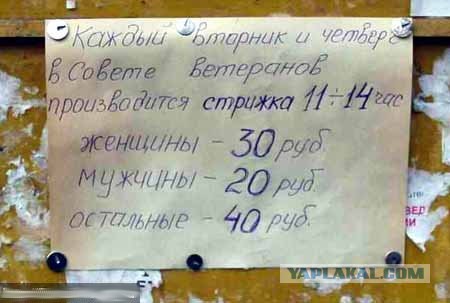 Каждый вторник и четверг
в Совете ветеранов
производится стрижка 11÷14 час
женщины - 30 руб.
мужчины - 20 руб.
остальные - 40 руб.
YAPLAKAL.COM